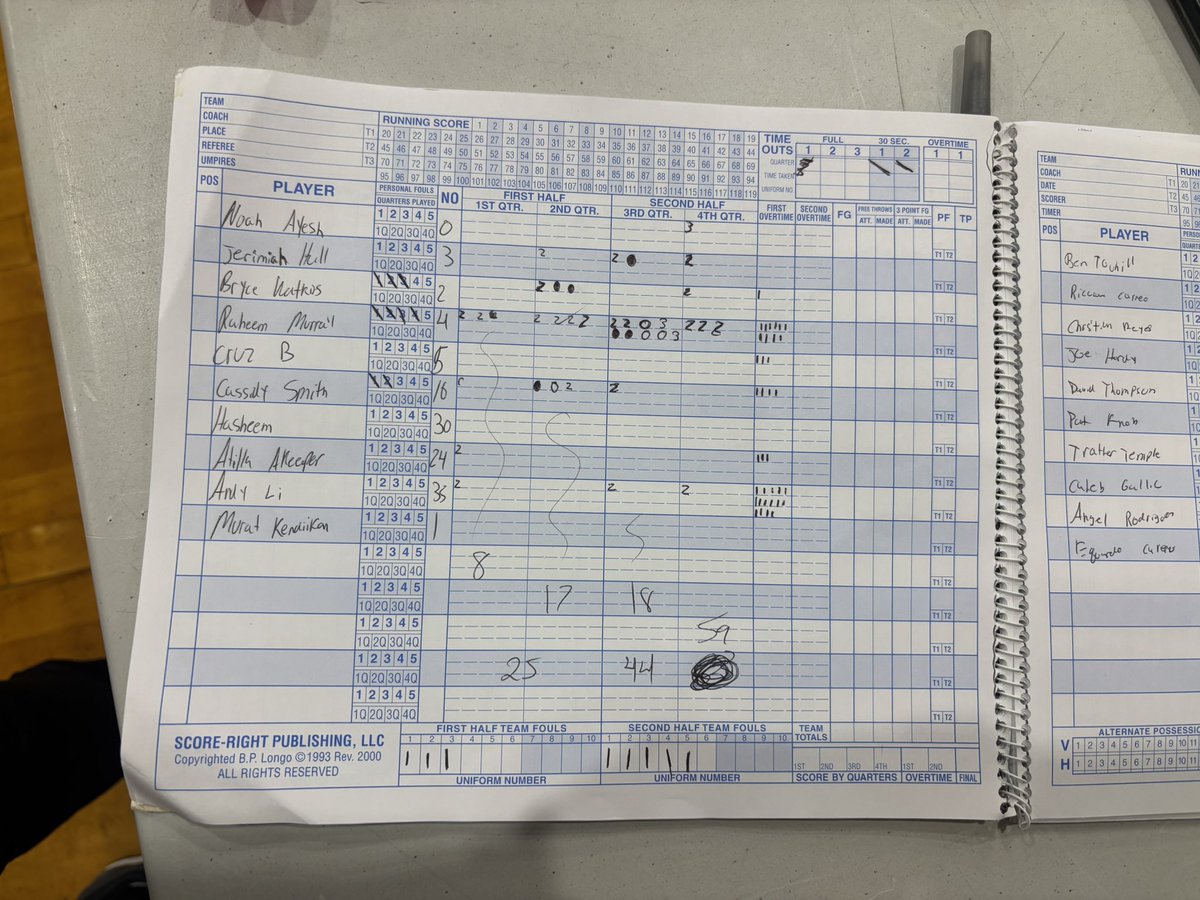 TEAM
COACH
PLACE
REFEREE
UMPIRES
RUNNING SCORE 1 2 3 4 5 6 7 8 9 10 11 12 13 14 15 16 17 18 19
T1 20 21 22 23 24 25 26 27 28 29 30 31 32 33 34 35 36 37 38 39 40 41 42 43 44
T2 45 46 47 48 49 50 51 52 53 54 55 56 57 58 59 60 61 62 63 64 65 66 67 68 69
T3 70 71 72 73 74 75 76 77 78 79 80 81 82 83 84 85 86 87 88 89 90 91 92 93 94
95 96 97 98 99 100 101 102 103 104 105 106 107 108 109 110 111 112 113 114 115 116 117 118 119
TIME OUTS FULL 30 SEC. OVERTIME
1 2 3 1 2 1 1
QUARTER
TIME TAKEN
UNIFORM NO.
POS PLAYER PERSONAL FOULS QUARTERS PLAYED NO FIRST HALF SECOND HALF
1ST QTR. 2ND QTR. 3RD QTR. 4TH QTR. FIRST OVERTIME SECOND OVERTIME FG FREE THROWS ATT. MADE 3 POINT FG ATT. MADE PF TP
Noah Ayesh 1 2 3 4 5 1Q 2Q 3Q 4Q 0 3 T1 T2
Jerimiah Hull 1 2 3 4 5 1Q 2Q 3Q 4Q 3 2 2 2 T1 T2
Bryce 1 2 3 4 5 1Q 2Q 3Q 4Q 2 2 2 T1 T2
Raheem Murray 1 2 3 4 5 1Q 2Q 3Q 4Q 4 2 2 2 2 2 2 2 2 2 0 3 2 2 2 T1 T2
0 0 3
Cruz B 1 2 3 4 5 1Q 2Q 3Q 4Q 5 T1 T2
Cassady Smith 1 2 3 4 5 1Q 2Q 3Q 4Q 16 0 2 2 T1 T2
Hasheem 1 2 3 4 5 1Q 2Q 3Q 4Q 30 T1 T2
Atilla Akeefer 1 2 3 4 5 1Q 2Q 3Q 4Q 24 2 T1 T2
Andy Li 1 2 3 4 5 1Q 2Q 3Q 4Q 35 2 2 2 T1 T2
Murat 1 2 3 4 5 1Q 2Q 3Q 4Q 1 T1 T2
1 2 3 4 5 1Q 2Q 3Q 4Q 8 T1 T2
1 2 3 4 5 1Q 2Q 3Q 4Q 17 18 T1 T2
1 2 3 4 5 1Q 2Q 3Q 4Q 59 T1 T2
1 2 3 4 5 1Q 2Q 3Q 4Q 25 44 T1 T2
1 2 3 4 5 1Q 2Q 3Q 4Q T1 T2
SCORE-RIGHT PUBLISHING, LLC
Copyrighted B.P. Longo ©1993 Rev. 2000
ALL RIGHTS RESERVED
FIRST HALF TEAM FOULS SECOND HALF TEAM FOULS TEAM TOTALS
1 2 3 4 5 6 7 8 9 10 1 2 3 4 5 6 7 8 9 10
1ST 2ND 3RD 4TH 1ST 2ND
UNIFORM NUMBER UNIFORM NUMBER SCORE BY QUARTERS OVERTIME FINAL
TEAM
COACH
DATE
SCORER
TIMER
T1
T2
T3
POS PLAYER
Ben Tovhill
Christian Reyes
Joe Hardy
David Thompson
Pat Knob
Tratter Temple
Caleb Gallic
Angel Rodrigues
ALTERNATE
V 1 2 3 4 5 6 7 8 9 10 11
H 1 2 3 4 5 6 7 8 9 10 11